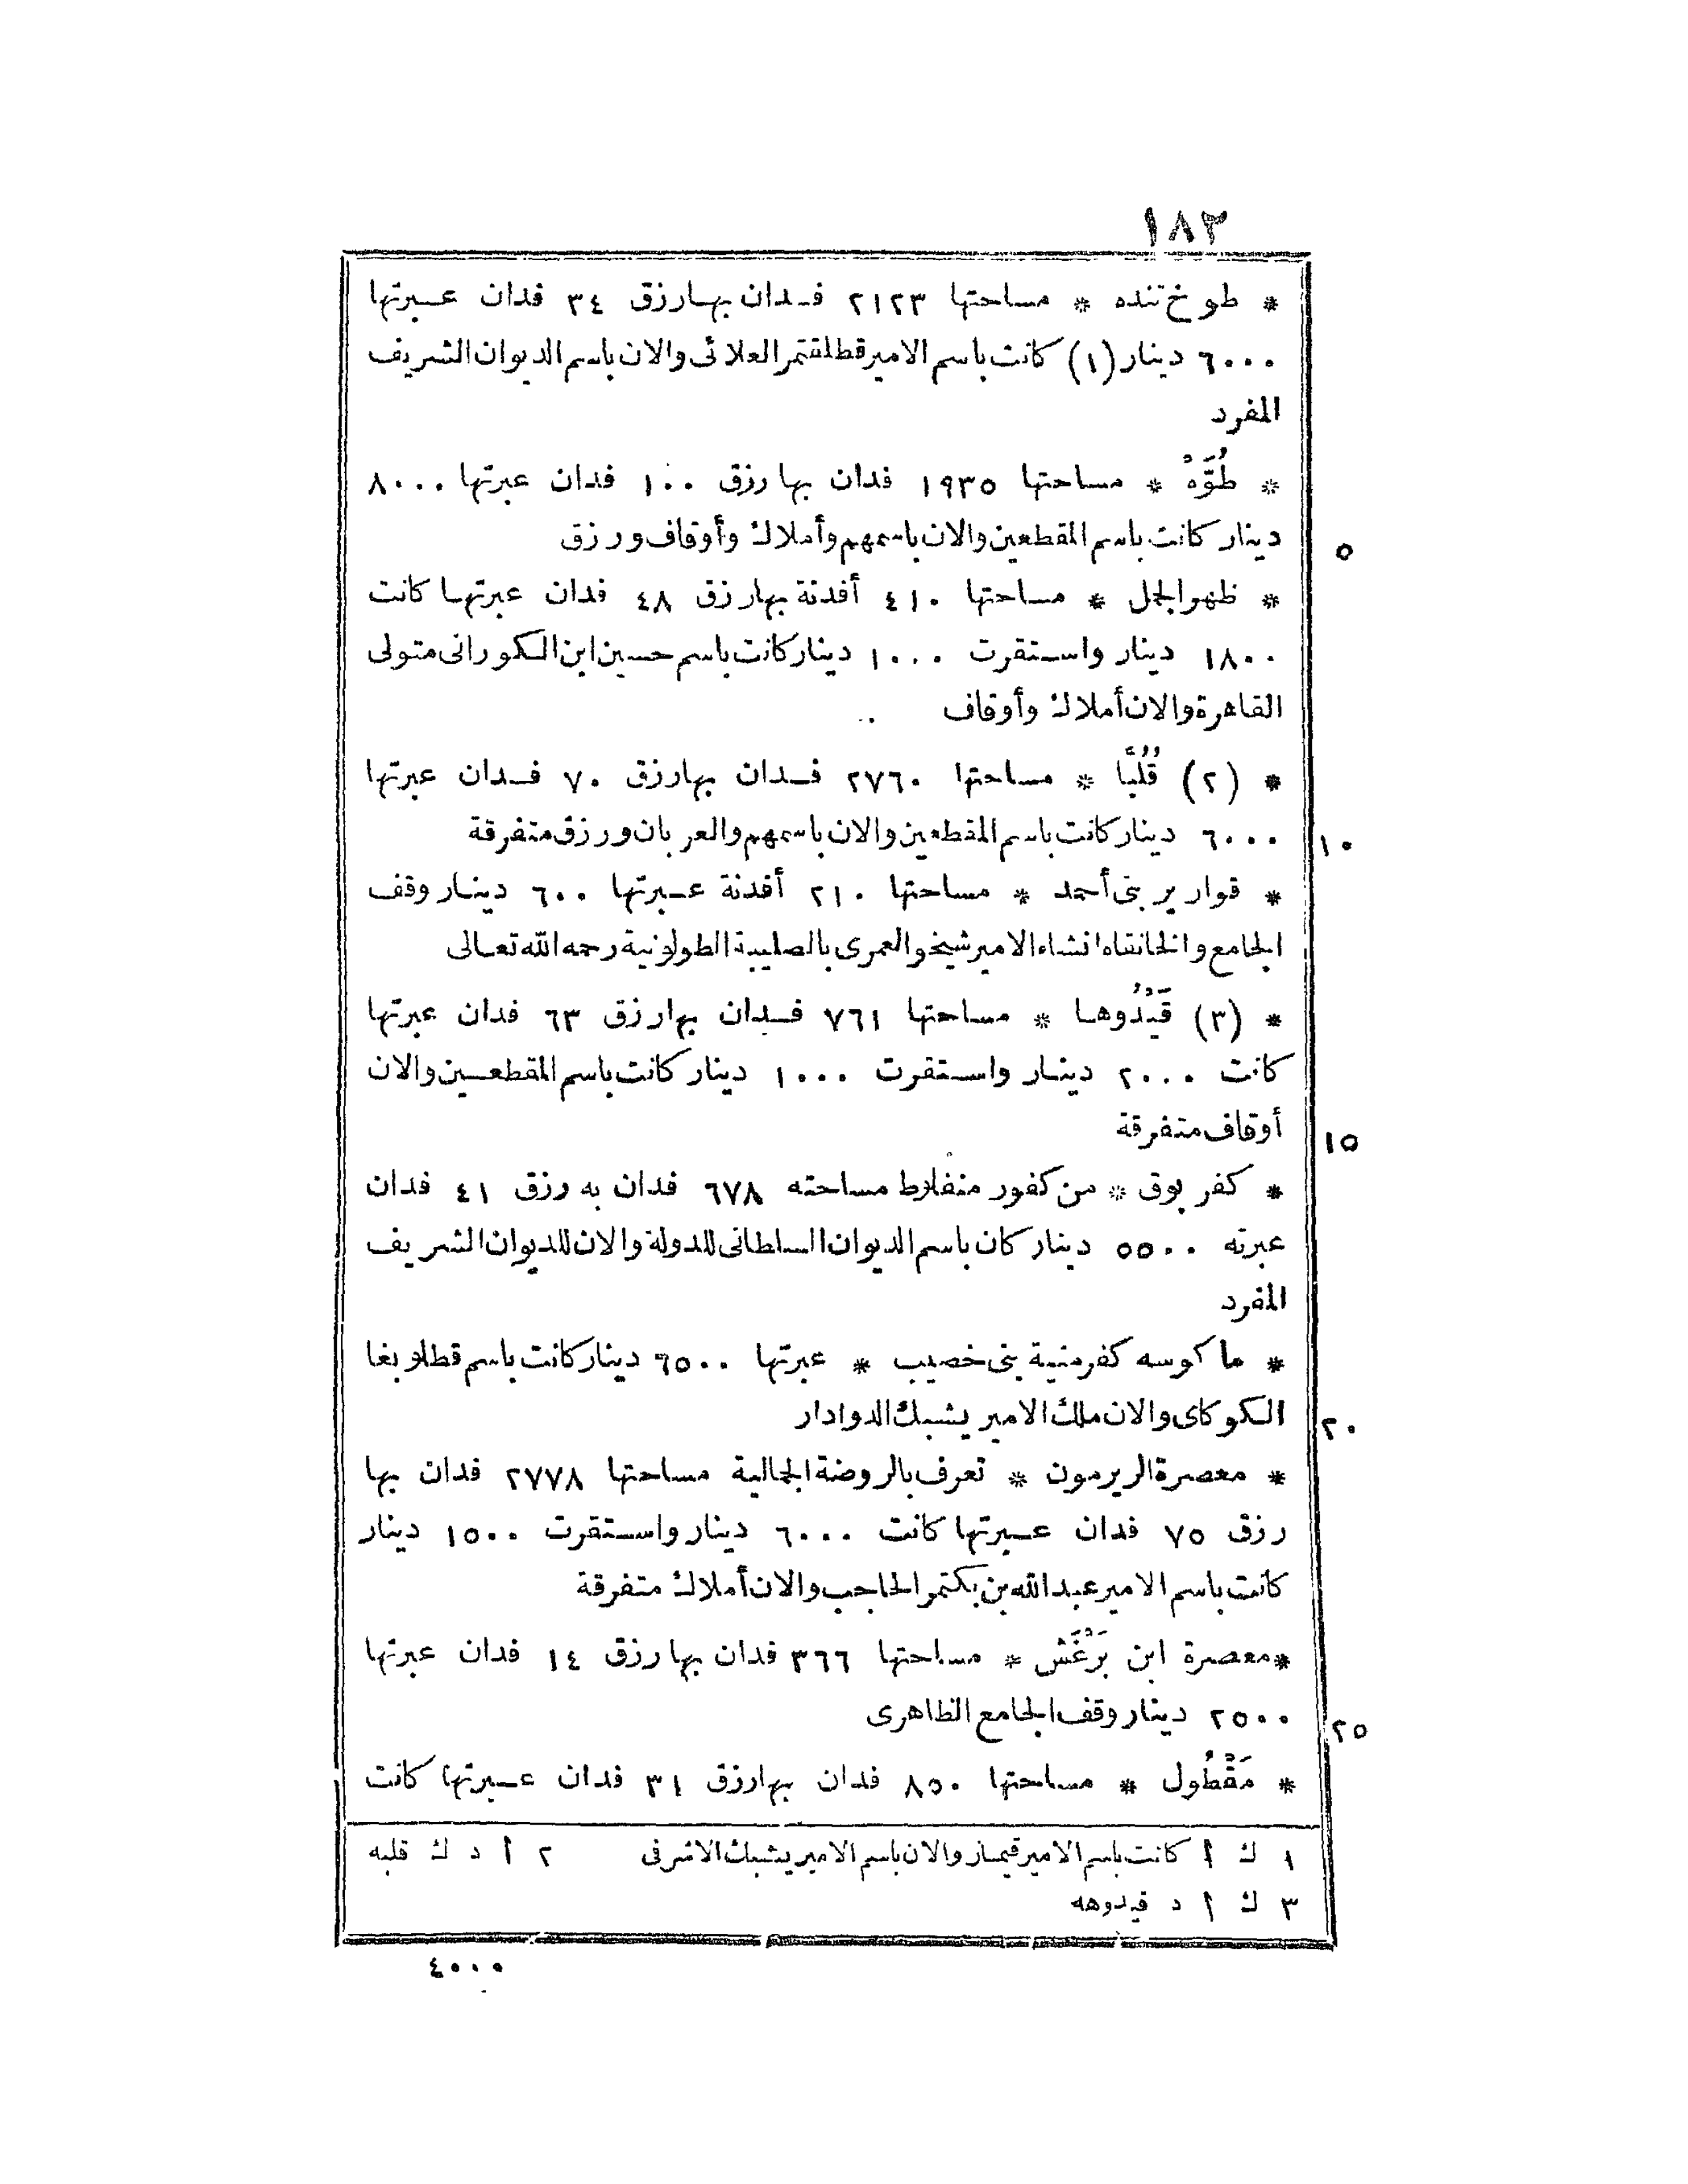 ١٨٣
* طوخ تنده * مساحتها ٢١٢٣ فدان بها رزق ٣٤ فدان عبرتها
٦٠٠٠ دينار (١) كانت باسم الامير قطلقتمر العلائى والان باسم الديوان الشريف
المفرد
* طُوَّهْ * مساحتها ١٩٣٥ فدان بها رزق ١٠٠ فدان عبرتها ٨٠٠٠
دينار كانت باسم المقطعين والان باسمهم وأملاك وأوقاف ورزق
٥
* ظهر الجمل * مساحتها ٤١٠ أفدنة بها رزق ٤٨ فدان عبرتها كانت
١٨٠٠ دينار واستقرت ١٠٠٠ دينار كانت باسم حسين ابن الكورانى متولى
القاهرة والان أملاك وأوقاف
* (٢) قُلُبَّا * مساحتها ٢٧٦٠ فدان بها رزق ٧٠ فدان عبرتها
٦٠٠٠ دينار كانت باسم المقطعين والان باسمهم والعربان ورزق متفرقة
١٠
* قوارير بنى أحمد * مساحتها ٢١٠ أفدنة عبرتها ٦٠٠ دينار وقف
الجامع والخانقاه انشاء الامير شيخو العمرى بالصليبة الطولونية رحمه الله تعالى
* (٣) قَيْدُوها * مساحتها ٧٦١ فدان بها رزق ٦٣ فدان عبرتها
كانت ٢٠٠٠ دينار واستقرت ١٠٠٠ دينار كانت باسم المقطعين والان
أوقاف متفرقة
١٥
* كفر بوق * من كفور منفلوط مساحته ٦٧٨ فدان به رزق ٤١ فدان
عبرته ٥٥٠٠ دينار كان باسم الديوان السلطانى للدولة والان للديوان الشريف
المفرد
* ماكوسه كفر منية بنى خصيب * عبرتها ٦٥٠٠ دينار كانت باسم قطلوبغا
الكوكاى والان ملك الامير يشبك الدوادار
٢٠
* معصرة الريرمون * تعرف بالروضة الجمالية مساحتها ٢٧٧٨ فدان بها
رزق ٧٥ فدان عبرتها كانت ٦٠٠٠ دينار واستقرت ١٥٠٠ دينار
كانت باسم الامير عبد الله بن بكتمر الحاجب والان أملاك متفرقة
* معصرة ابن بَرْغَش * مساحتها ٣٦٦ فدان بها رزق ١٤ فدان عبرتها
٢٥٠٠ دينار وقف الجامع الظاهرى
٢٥
* مَقْطُول * مساحتها ٨٥٠ فدان بها رزق ٣١ فدان عبرتها كانت
١ ك أ كانت باسم الامير قيماز والان باسم الامير يشبك الاشرفى ٢ أ د ك قلبه
٣ ك أ د فيدوهه
٤٠٠٠